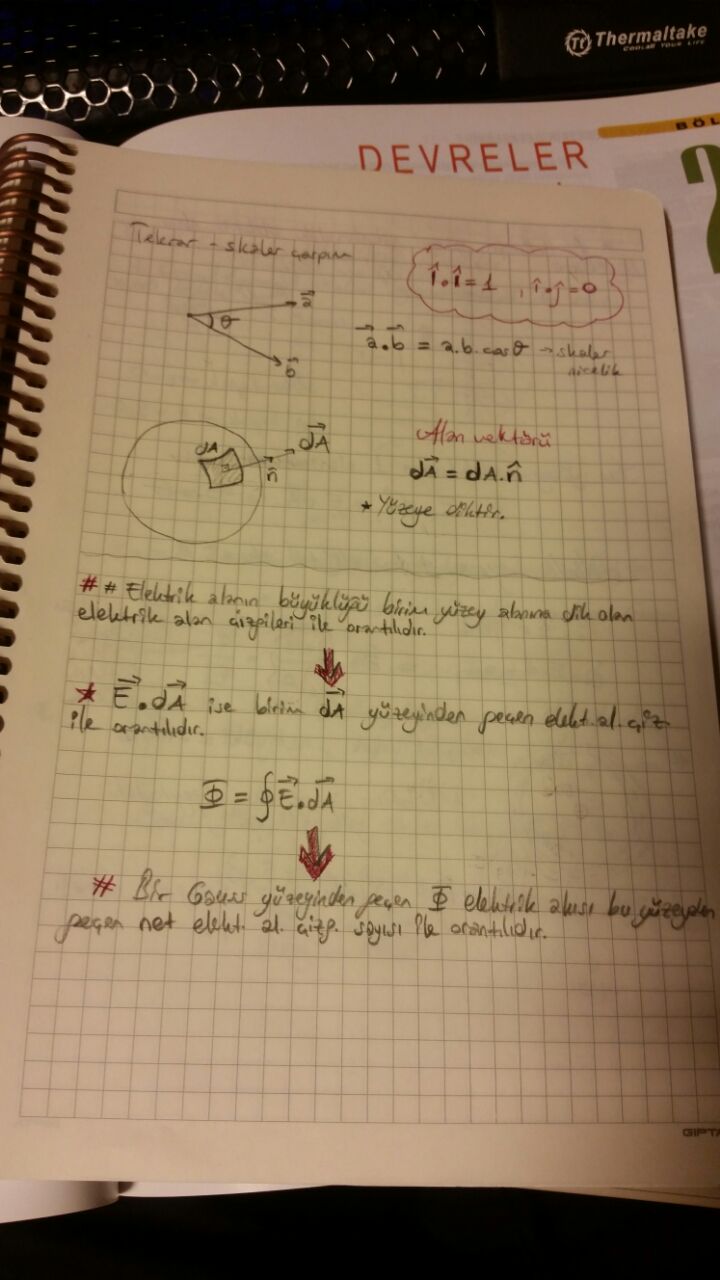 Thermaltake
COOL ALL YOUR LIFE
BÖL
DEVRELER
Tekrar - skaler çarpım
î.î=1 , î.ĵ=0
a⃗
θ
b⃗
a⃗.b⃗ = a.b.cosθ → skaler
nicelik
dA
dA⃗
n̂
Alan vektörü
dA⃗ = dA.n̂
* Yüzeye diktir.
# # Elektrik alanın büyüklüğü birim yüzey alanına dik olan
elektrik alan çizgileri ile orantılıdır.
★ E⃗.dA⃗ ise birim dA⃗ yüzeyinden geçen elekt. al. çiz.
ile orantılıdır.
Φ = ∮E⃗.dA⃗
# Bir Gauss yüzeyinden geçen Φ elektrik akısı bu yüzeyden
geçen net elekt. al. çizg. sayısı ile orantılıdır.
GIPTA